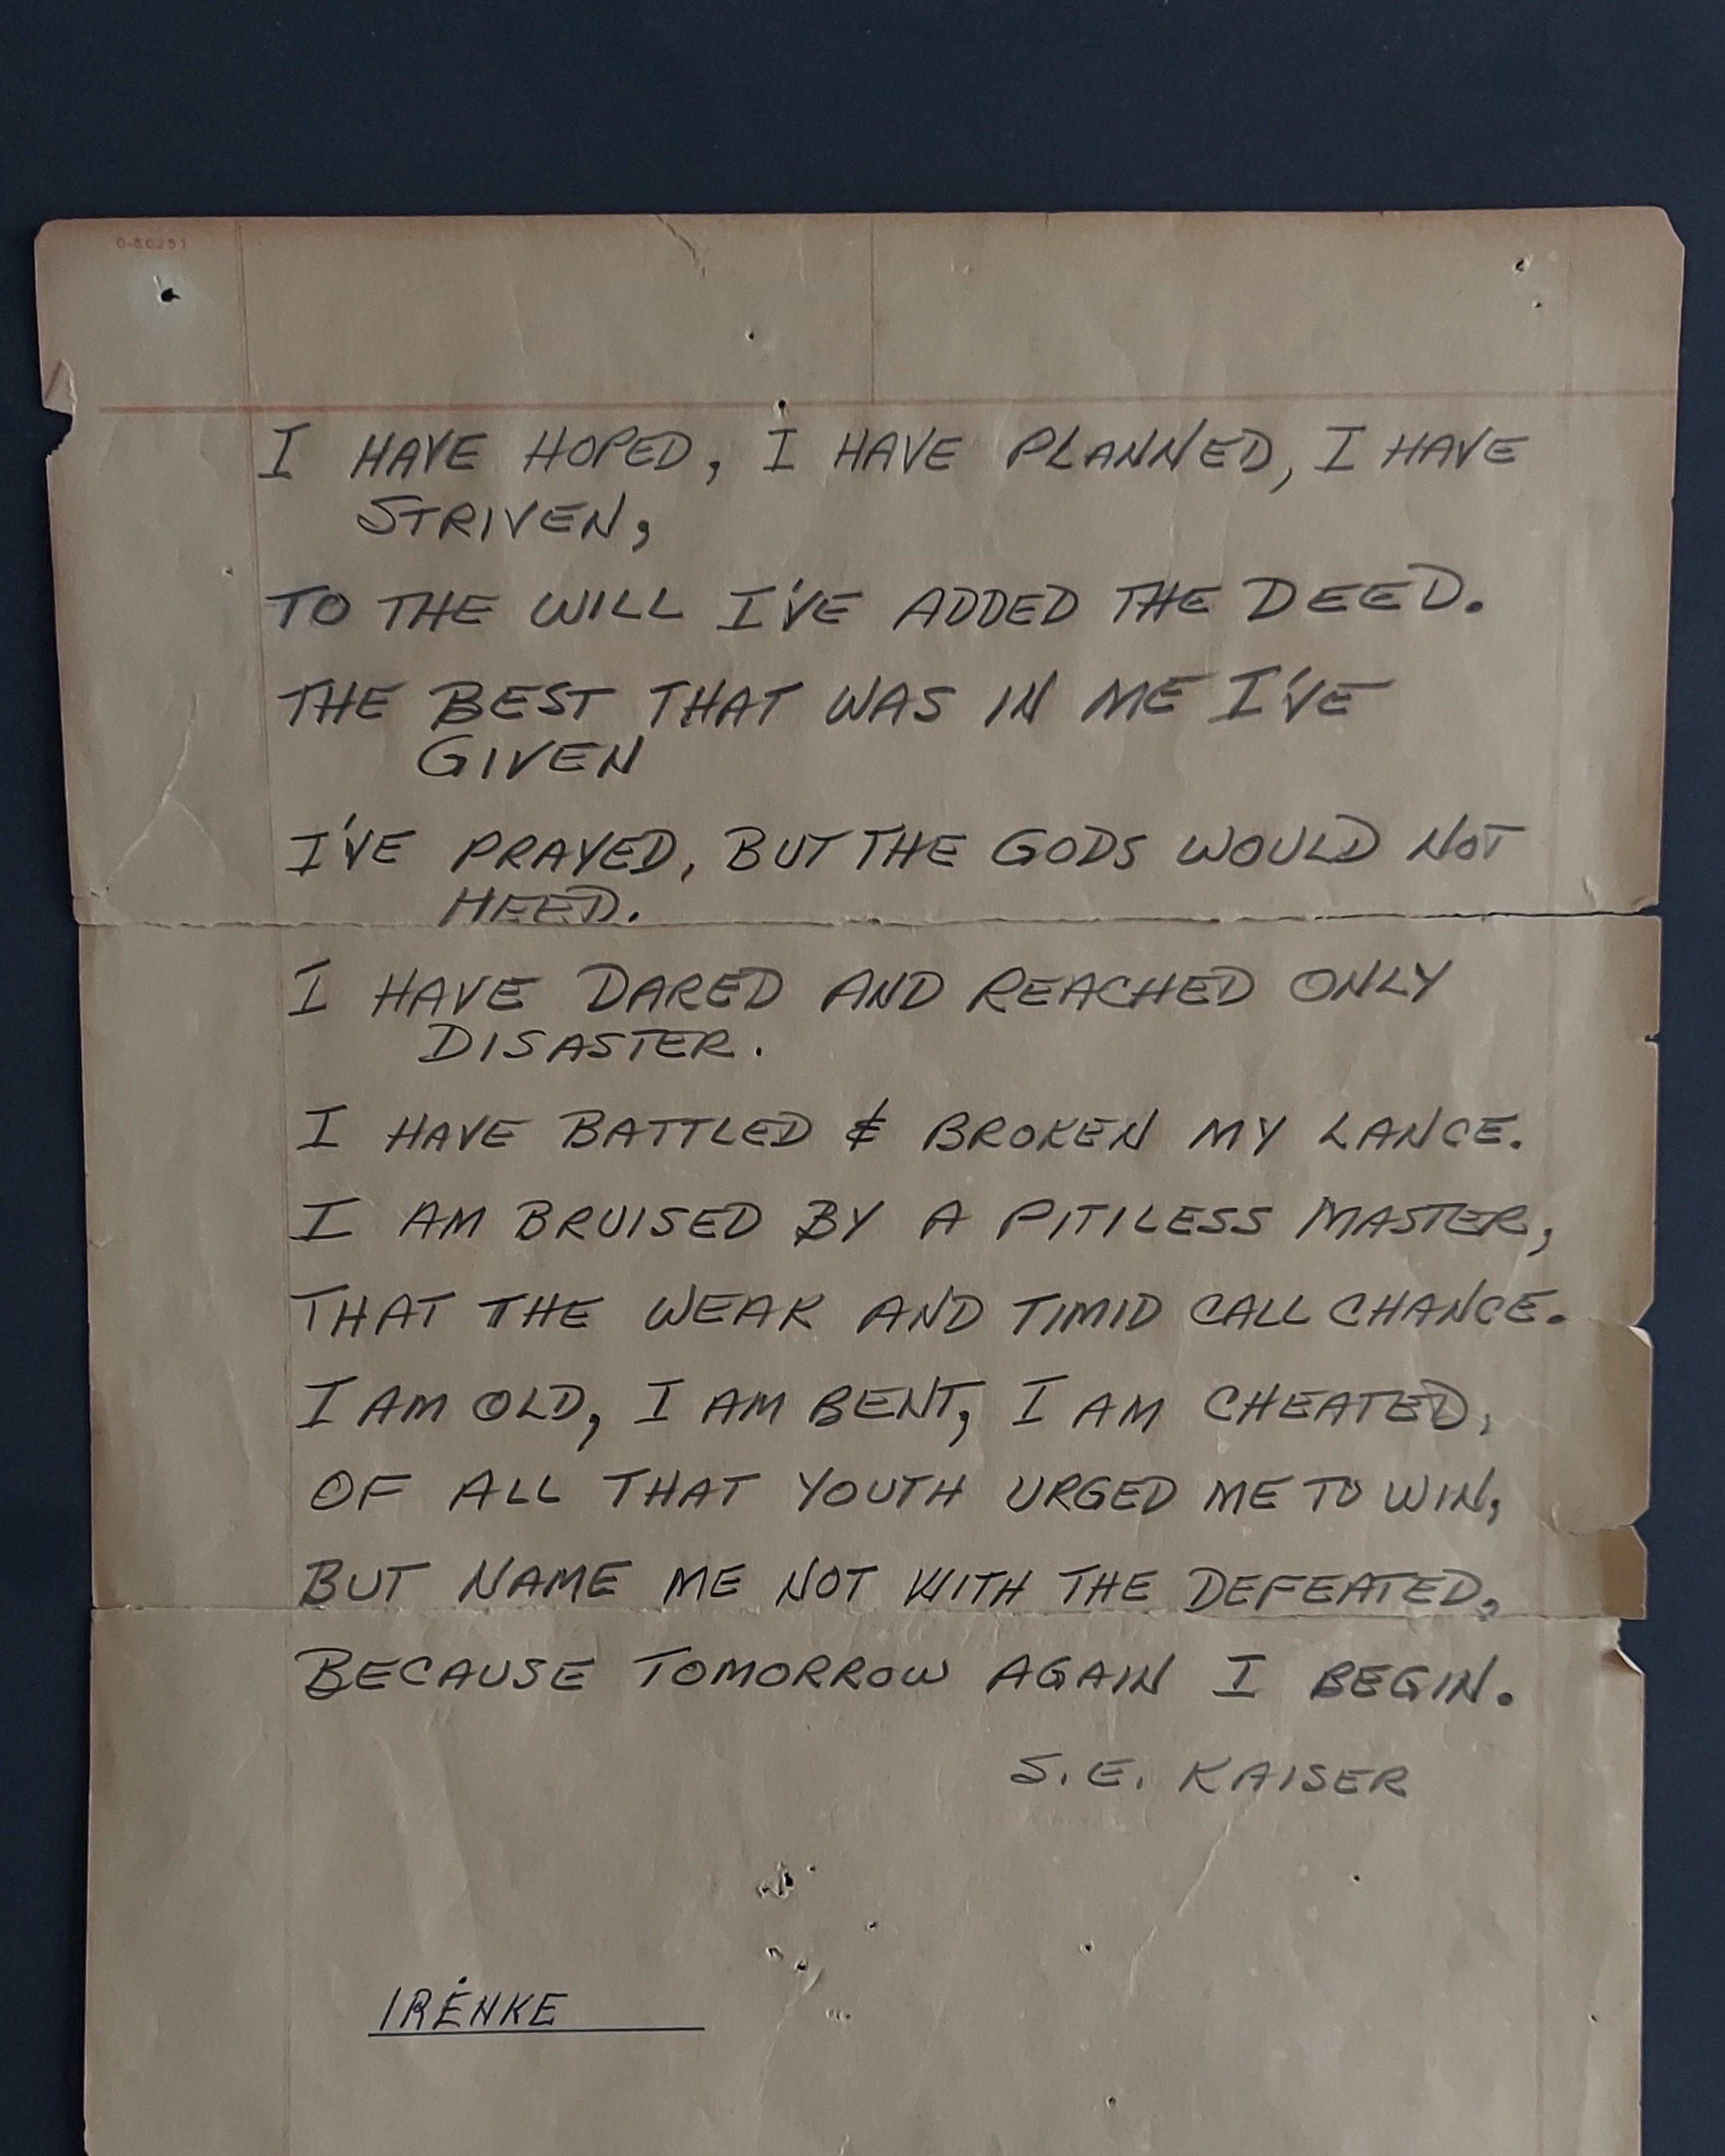 I HAVE HOPED, I HAVE PLANNED, I HAVE
STRIVEN,
TO THE WILL I'VE ADDED THE DEED.
THE BEST THAT WAS IN ME I'VE
GIVEN
I'VE PRAYED, BUT THE GODS WOULD NOT
HEED.
I HAVE DARED AND REACHED ONLY
DISASTER.
I HAVE BATTLED & BROKEN MY LANCE.
I AM BRUISED BY A PITILESS MASTER,
THAT THE WEAK AND TIMID CALL CHANCE.
I AM OLD, I AM BENT, I AM CHEATED,
OF ALL THAT YOUTH URGED ME TO WIN,
BUT NAME ME NOT WITH THE DEFEATED,
BECAUSE TOMORROW AGAIN I BEGIN.
S.E. KAISER
IRĖNKE